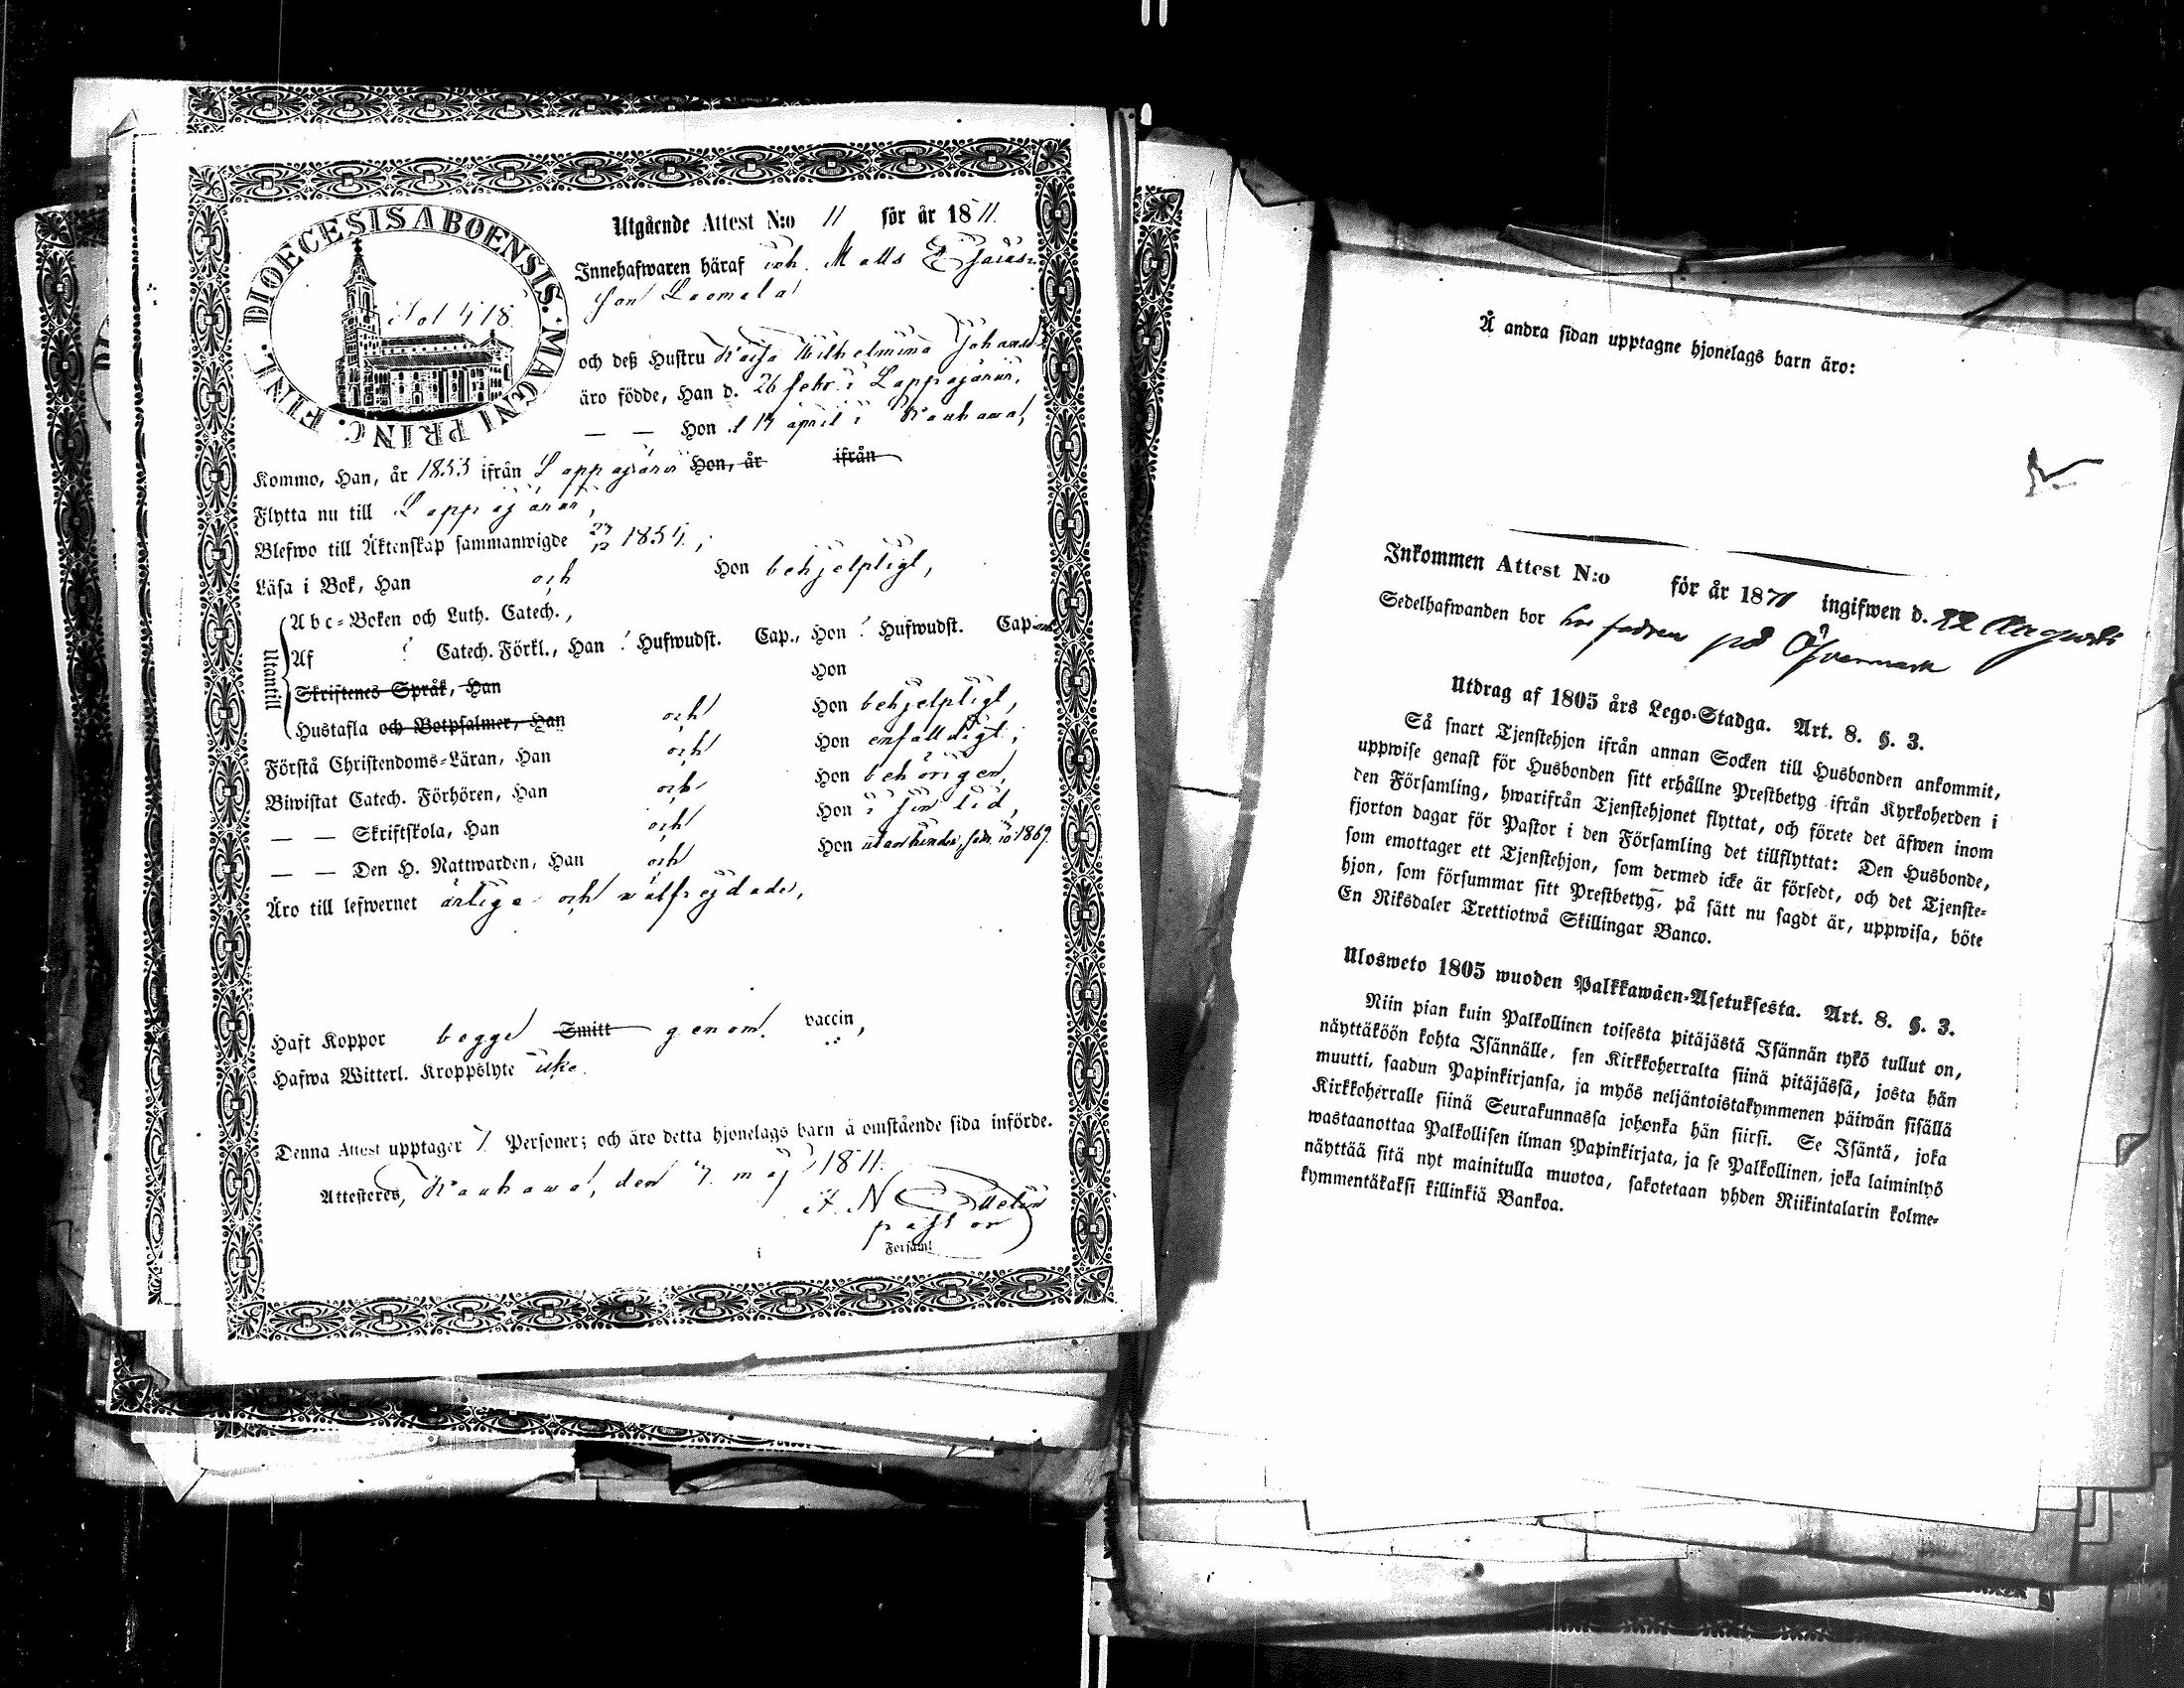 DIOECESIS ABOENSIS. MAGNI PRINC. FINL.
Fol 418.
Utgående Attest N:o 11 för år 1811.
Innehafwaren häraf inh. Matts Esaias
son Luomala
och deß Hustru Kaisa Wilhelmina Johansd
äro födde, Han d. 26 febr. i Lappajärvi,
— — Hon d 14 april i Kauhawa,
Kommo, Han, år 1853 ifrån Lappajärvi Hon, år ifrån
Flytta nu till Lappajärvi,
Blefwo till Äktenskap sammanwigde 27/12 1854.,
Läsa i Bok, Han och Hon behjelpligt,
Utantill
Abc-Boken och Luth. Catech.,
Af Catech. Förkl., Han Hufwudst. Cap., Hon Hufwudst. Cap
Skriftenes Språk, Han Hon
Hustafla och Botpsalmer, Han och Hon behjelpligt,
Förstå Christendoms-Läran, Han och Hon enfalldigt,
Biwistat Catech. Förhören, Han och Hon behörigen,
— — Skriftskola, Han och Hon i sin tid,
— — Den H. Nattwarden, Han och Hon 1869.
Äro till lefwernet ärliga och välfrejdade,
Haft Koppor begge Smitt genom vaccin,
Hafwa Witterl. Kroppslyte icke.
Denna Attest upptager 2 Personer; och äro detta hjonelags barn å omstående sida införde.
Attesteres, Kauhawa, den 7. maj 1811.
F. N
pastor
i Församl
Å andra sidan upptagne hjonelags barn äro:
Inkommen Attest N:o för år 1871 ingifwen d. 22 Augusti
Sedelhafwanden bor hos fadren på Öfvermark
Utdrag af 1805 års Lego-Stadga. Art. 8. §. 3.
Så snart Tjenstehjon ifrån annan Socken till Husbonden ankommit,
uppwise genast för Husbonden sitt erhållne Prestbetyg ifrån Kyrkoherden i
den Församling, hwarifrån Tjenstehjonet flyttat, och förete det äfwen inom
fjorton dagar för Pastor i den Församling det tillflyttat: Den Husbonde,
som emottager ett Tjenstehjon, som dermed icke är försedt, och det Tjenste-
hjon, som försummar sitt Prestbetyg, på sätt nu sagdt är, uppwisa, böte
En Riksdaler Trettiotwå Skillingar Banco.
Ulosweto 1805 wuoden Palkkawäen-Asetuksesta. Art. 8. §. 3.
Niin pian kuin Palkollinen toisesta pitäjästä Isännän tykö tullut on,
näyttäköön kohta Isännälle, sen Kirkkoherralta siinä pitäjässä, josta hän
muutti, saadun Papinkirjansa, ja myös neljäntoistakymmenen päiwän sisällä
Kirkkoherralle siinä Seurakunnassa johonka hän siirsi. Se Isäntä, joka
wastaanottaa Palkollisen ilman Papinkirjata, ja se Palkollinen, joka laiminlyö
näyttää sitä nyt mainitulla muotoa, sakotetaan yhden Riikintalarin kolme-
kymmentäkaksi killinkiä Bankoa.